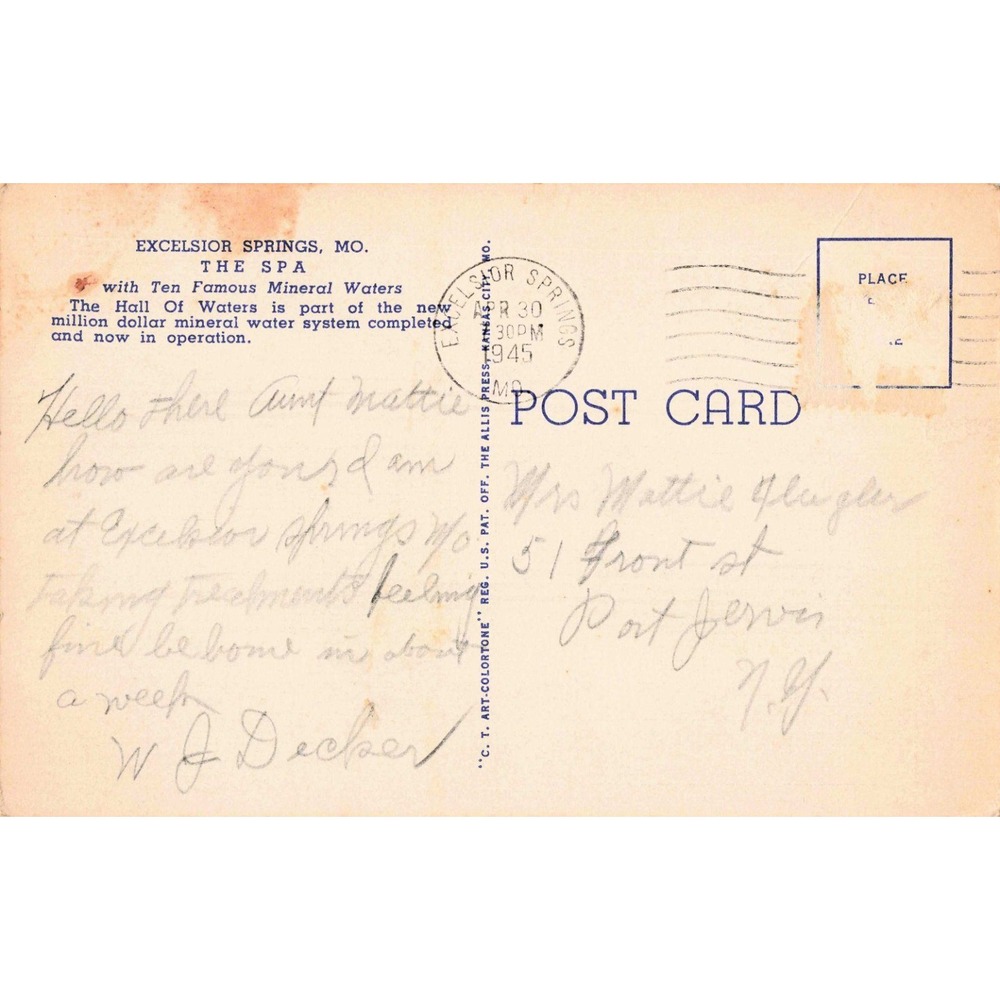 EXCELSIOR SPRINGS, MO.
THE SPA
with Ten Famous Mineral Waters
The Hall Of Waters is part of the new
million dollar mineral water system completed
and now in operation.
Hello there Aunt Mattie
how are you, I am
at Excelsior Springs Mo
taking treatments feeling
fine be home in about
a week
W J Decker
"C. T. ART-COLORTONE" REG. U.S. PAT. OFF. THE ALLIS PRESS, KANSAS CITY, MO.
EXCELSIOR SPRINGS
APR 30
30PM
1945
MO.
PLACE
POST CARD
Mrs Mattie
51 Front st
Port Jervis
N.Y.